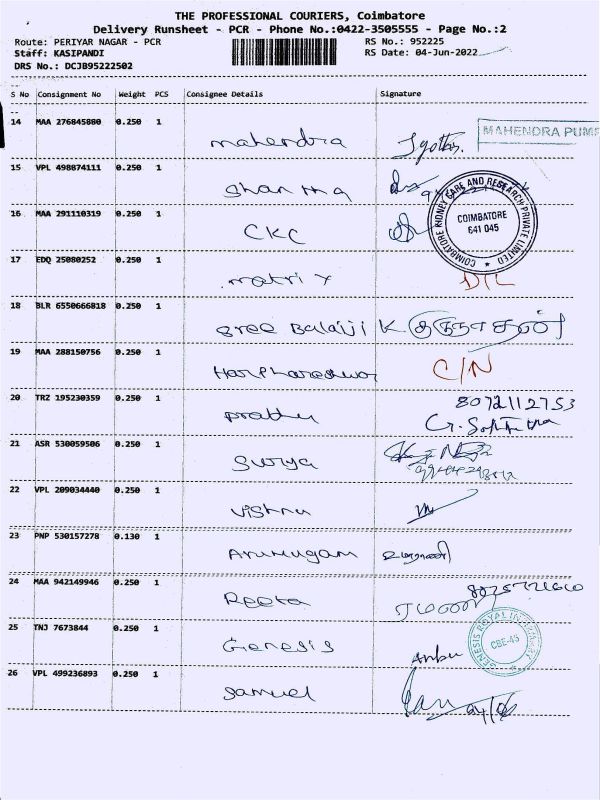 THE PROFESSIONAL COURIERS, Coimbatore
Delivery Runsheet - PCR - Phone No.:0422-3505555 - Page No.:2
Route: PERIYAR NAGAR - PCR RS No.: 952225
Staff: KASIPANDI RS Date: 04-Jun-2022
DRS No.: DCJB95222502
S No Consignment No Weight PCS Consignee Details Signature
14 MAA 276845880 0.250 1 mahendra Jyothi. MAHENDRA PUMP
15 VPL 498874111 0.250 1 Shantha
16 MAA 291110319 0.250 1 CKC
COIMBATORE KIDNEY CARE AND RESEARCH PRIVATE LIMITED
COIMBATORE
641 045
17 EDQ 25080252 0.250 1 matrix D/L
18 BLR 6550666818 0.250 1 Sree Balaji K.
19 MAA 288150756 0.250 1 C/N
20 TRZ 195230359 0.250 1 prathu 8072112753
21 ASR 530059506 0.250 1 Surya
22 VPL 209034440 0.250 1 Vishnu
23 PNP 530157278 0.130 1 Arumugam
24 MAA 942149946 0.250 1 Reeta
25 TNJ 7673844 0.250 1 Genesis Anbu
CBE-45
26 VPL 499236893 0.250 1 Samuel